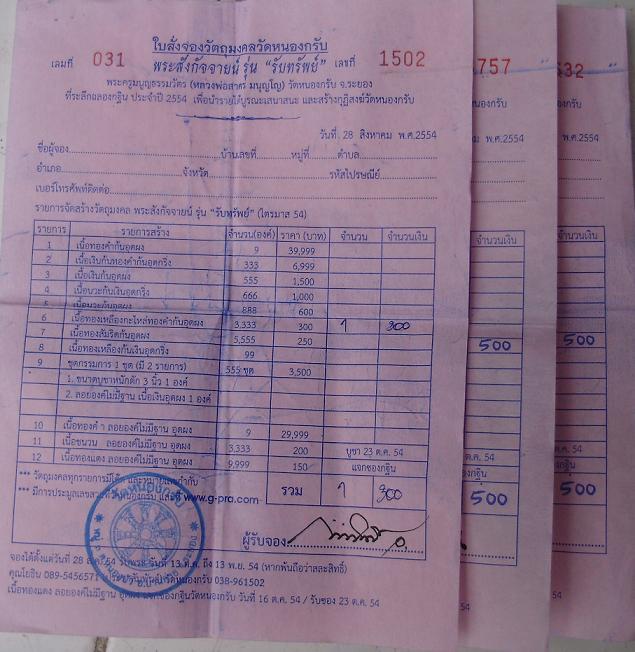 ใบสั่งจองวัตถุมงคลวัดหนองกรับ
เล่มที่ 031 พระสังกัจจายน์ รุ่น "รับทรัพย์" เลขที่ 1502
พระครูมนูญธรรมวัตร (หลวงพ่อสาคร มนุญโญ) วัดหนองกรับ จ.ระยอง
ที่ระลึกฉลองกฐิน ประจำปี 2554 เพื่อนำรายได้บูรณะเสนาสนะ และสร้างกุฏิสงฆ์วัดหนองกรับ
วันที่ 28 สิงหาคม พ.ศ.2554
ชื่อผู้จอง บ้านเลขที่ หมู่ที่ ตำบล
อำเภอ จังหวัด รหัสไปรษณีย์
เบอร์โทรศัพท์ติดต่อ
รายการจัดสร้างวัตถุมงคล พระสังกัจจายน์ รุ่น "รับทรัพย์" (ไตรมาส 54)
รายการ รายการสร้าง จำนวน(องค์) ราคา (บาท) จำนวน จำนวนเงิน
1 เนื้อทองคำก้นอุดผง 9 39,999
2 เนื้อเงินก้นทองคำก้นอุดกริ่ง 333 6,999
3 เนื้อเงินก้นอุดผง 555 1,500
4 เนื้อนวะก้นเงินอุดกริ่ง 666 1,000
5 เนื้อนวะก้นอุดผง 888 600
6 เนื้อทองเหลืองกะไหล่ทองคำก้นอุดผง 3,333 300 1 300
7 เนื้อทองสัมริดก้นอุดผง 5,555 250
8 เนื้อทองเหลืองก้นเงินอุดกริ่ง 99
9 ชุดกรรมการ 1 ชุด (มี 2 รายการ) 555 ชุด 3,500
1. ขนาดบูชาหน้าตัก 3 นิ้ว 1 องค์
2. ลอยองค์ไม่มีฐาน เนื้อเงินอุดผง 1 องค์
10 เนื้อทองคำ ลอยองค์ไม่มีฐาน อุดผง 9 29,999
11 เนื้อชนวน ลอยองค์ไม่มีฐาน อุดผง 3,333 200 บูชา 23 ต.ค. 54
12 เนื้อทองแดง ลอยองค์ไม่มีฐาน อุดผง 9,999 150 แจกองกฐิน
*** วัตถุมงคลทุกรายการมีโค๊ด และหมายเลขกำกับ
*** มีการประมูลเลขสวย www.g-pra.com รวม 1 300
ผู้รับจอง
จองได้ตั้งแต่วันที่ 28 ส.ค. 54 วันที่ 13 ต.ค. ถึง 13 พ.ย. 54 (หากพ้นถือว่าสละสิทธิ์)
คุณโยธิน 089-5456571 วัดหนองกรับ 038-961502
เนื้อทองแดง ลอยองค์ไม่มีฐาน อุดผง แจกองกฐินวัดหนองกรับ วันที่ 16 ต.ค. 54 / รับของ 23 ต.ค. 54
757
หนองกรับ
พ.ศ.2554
จำนวนเงิน
500
ต.ค. 54
500
532
หนองกรับ
พ.ศ.2554
จำนวนเงิน
500
ต.ค. 54
500